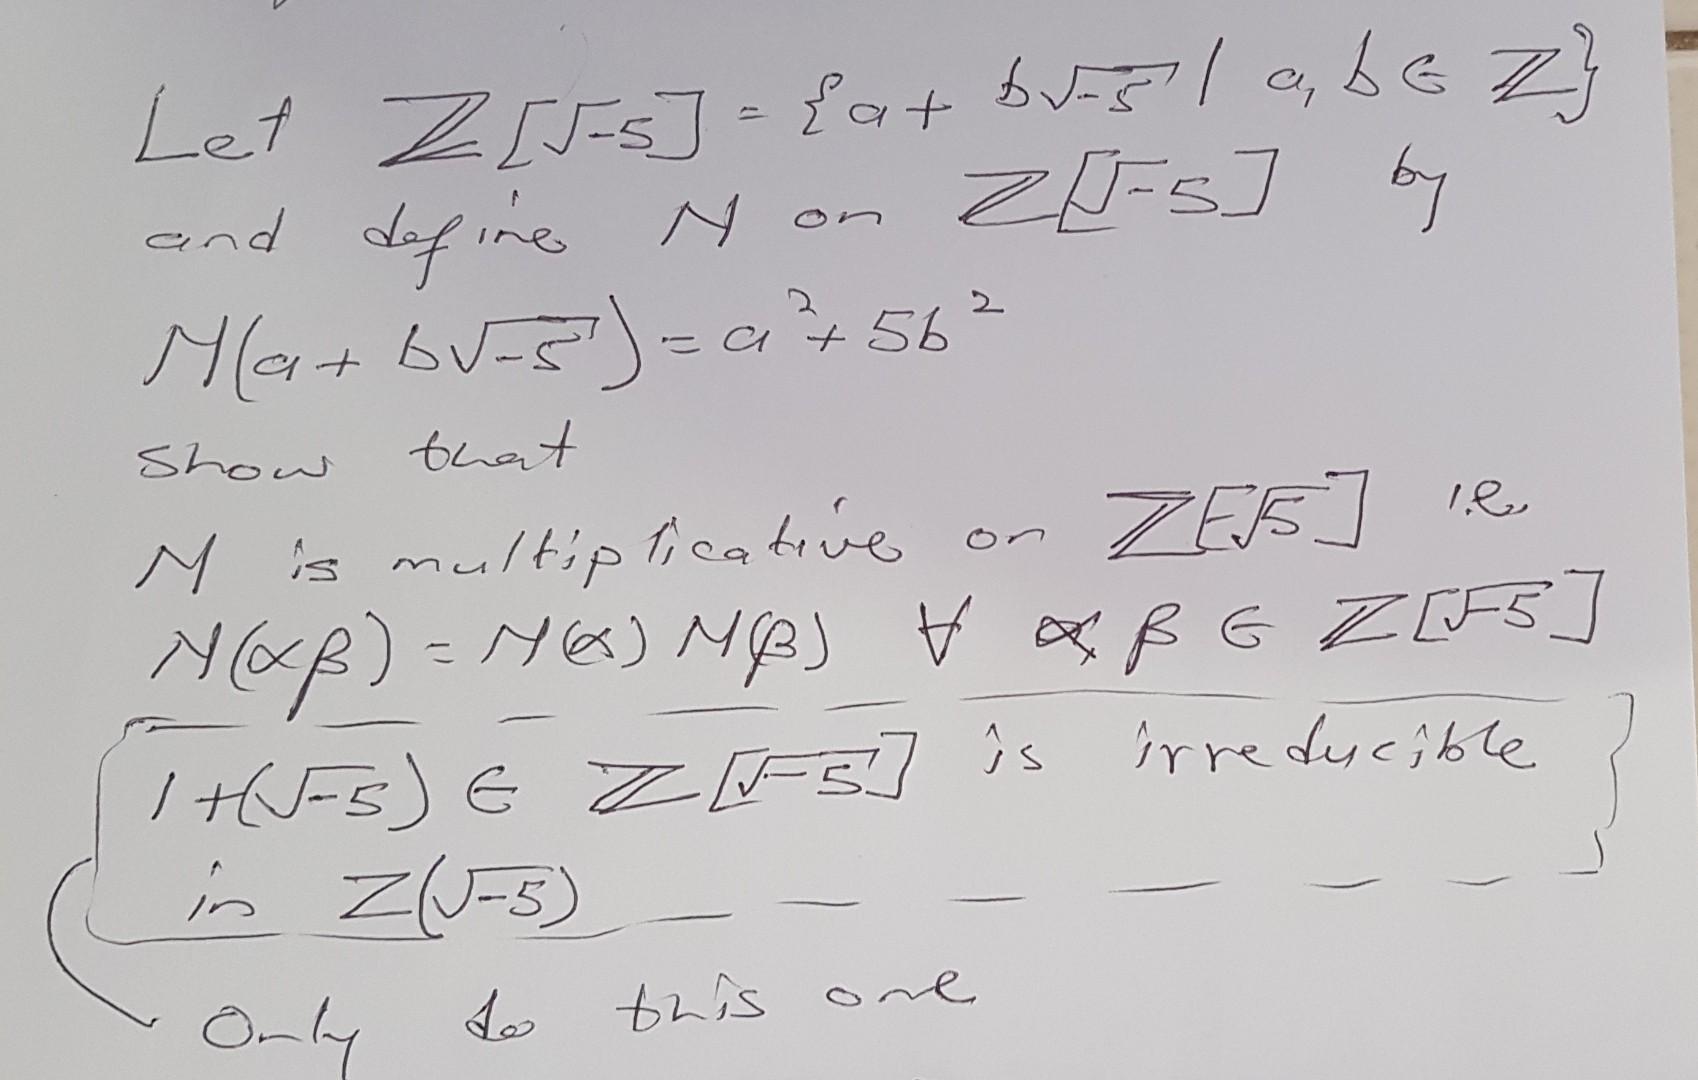 Let ℤ[√-5] = {a + b√-5 | a, b ∈ ℤ}
and define N on ℤ[√-5] by
N(a + b√-5) = a² + 5b²
show that
N is multiplicative on ℤ[√-5] i.e
N(αβ) = N(α) N(β) ∀ α β ∈ ℤ[√-5]
1+(√-5) ∈ ℤ[√-5] is irreducible
in ℤ(√-5)
Only do this one